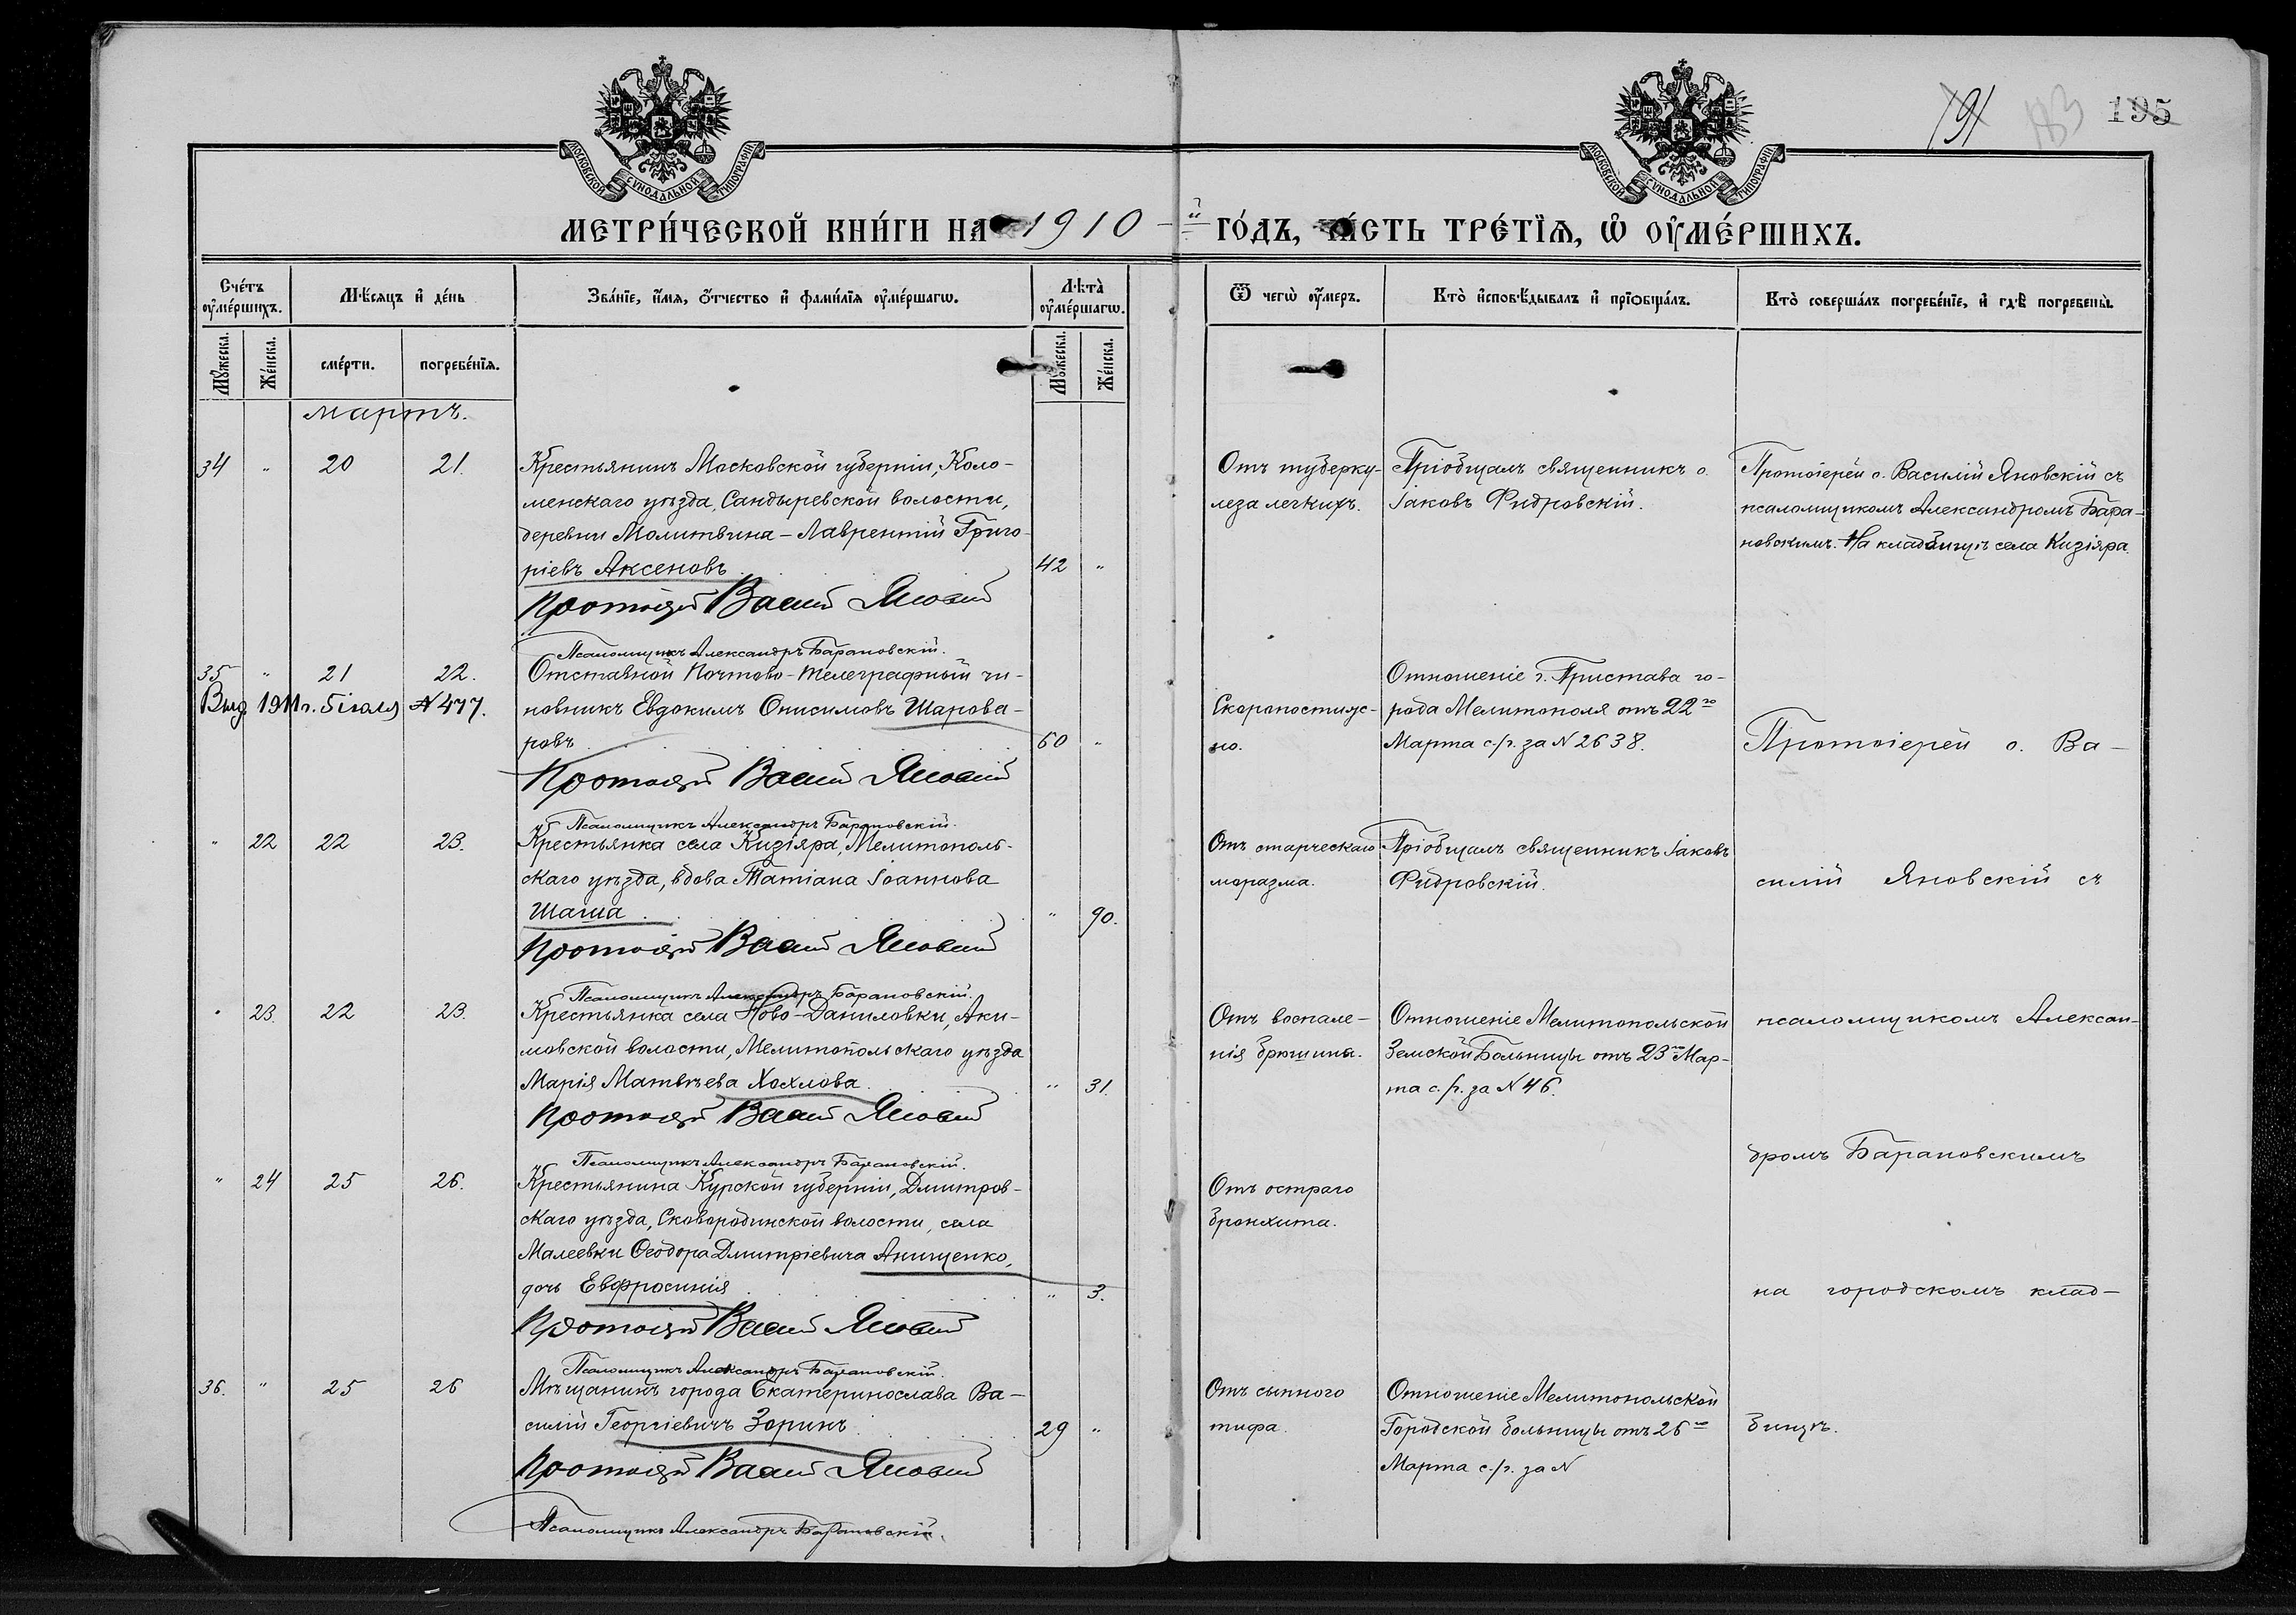 91 183 195
МОСКОВСКОЙ СѴНОДАЛЬНОЙ ТИПОГРАФІИ
МОСКОВСКОЙ СѴНОДАЛЬНОЙ ТИПОГРАФІИ
МЕТРИ́ЧЕСКОЙ КНИ́ГИ НА 1910-й ГО́ДЪ, ЧА́СТЬ ТРЕ́ТЇѦ, Ѡ ОУ҆МЕ́РШИХЪ.
Сче́тъ оу҆ме́ршихъ.
Мѣ́сяцъ и҆ де́нь
Зва́нїе, и҆́мя, ѻ҆́тчество и҆ фами́лїя оу҆ме́ршагѡ.
Лѣ́та̀ оу҆ме́ршагѡ.
Ѿ чегѡ̀ оу҆́меръ.
Кто̀ и҆сповѣ́дывалъ и҆ прїѻбща́лъ.
Кто̀ соверша́лъ погребе́нїе, и҆ гдѣ̀ погребены̀.
Мꙋ́жеска. Же́нска. сме́рти. погребе́нїя. Мꙋ́жеска. Же́нска.
мартъ.
34 " 20 21. Крестьянинъ Московской губерніи, Коло-
менскаго уѣзда, Сандыревской волости,
деревни Молитвина - Лаврентій Григо-
ріевъ Аксеновъ. 42 "
Протоіерей Василій Яновскій
Псаломщикъ Александръ Барановскій.
Отъ туберку-
леза легкихъ.
Пріобщалъ священникъ о.
Іаковъ Фидровскій.
Протоіерей о. Василій Яновскій съ
псаломщикомъ Александромъ Бара-
новскимъ. На кладбищѣ села Кизіяра.
35 " 21 22. Отставной Почтово-телеграфный чи-
Выд. 1911 г. 5 іюля № 477. новникъ Евдокимъ Онисимовъ Шарова-
ровъ 60 "
Протоіерей Василій Яновскій
Псаломщикъ Александръ Барановскій.
Скоропостиж-
но.
Отношеніе г. Пристава го-
рода Мелитополя отъ 22го
Марта с/г. за № 2638.
Протоіерей о. Ва-
" 22 22 23. Крестьянка села Кизіяра, Мелитополь-
скаго уѣзда, вдова Татіана Іоаннова
Шаша " 90.
Протоіерей Василій Яновскій
Псаломщикъ Александръ Барановскій.
Отъ старческаго
маразма.
Пріобщалъ священникъ Іаковъ
Фидровскій.
силій Яновскій съ
" 23. 22 23. Крестьянка села Ново-Даниловки, Аки-
мовской волости, Мелитопольскаго уѣзда
Марія Матвѣева Хохлова " 31.
Протоіерей Василій Яновскій
Псаломщикъ Александръ Барановскій.
Отъ воспале-
нія брюшина.
Отношеніе Мелитопольской
Земской Больницы отъ 23го Мар-
та с./г. за № 46.
псаломщикомъ Алексан-
дромъ Барановскимъ
" 24 25 26. Крестьянина Курской губерніи, Дмитров-
скаго уѣзда, Сковородинской волости, села
Малеевки Ѳеодора Дмитріевича Анищенко,
дочь Евфросинія " 3.
Протоіерей Василій Яновскій
Псаломщикъ Александръ Барановскій.
Отъ остраго
бронхита.
на городскомъ клад-
36. " 25 26 Мѣщанинъ города Екатеринослава Ва-
силій Георгіевичъ Зоринъ 29 "
Протоіерей Василій Яновскій
Псаломщикъ Александръ Барановскій.
Отъ сыпного
тифа.
Отношеніе Мелитопольской
Городской больницы отъ 26го
Марта с./г. за №
бищѣ.